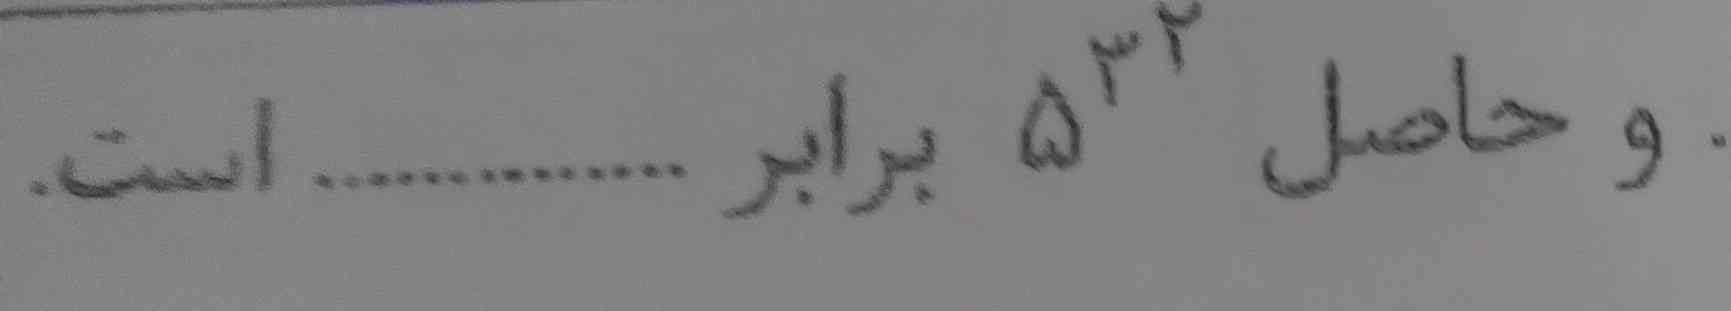 . و حاصل ۵^۳^۲ برابر .............. است.